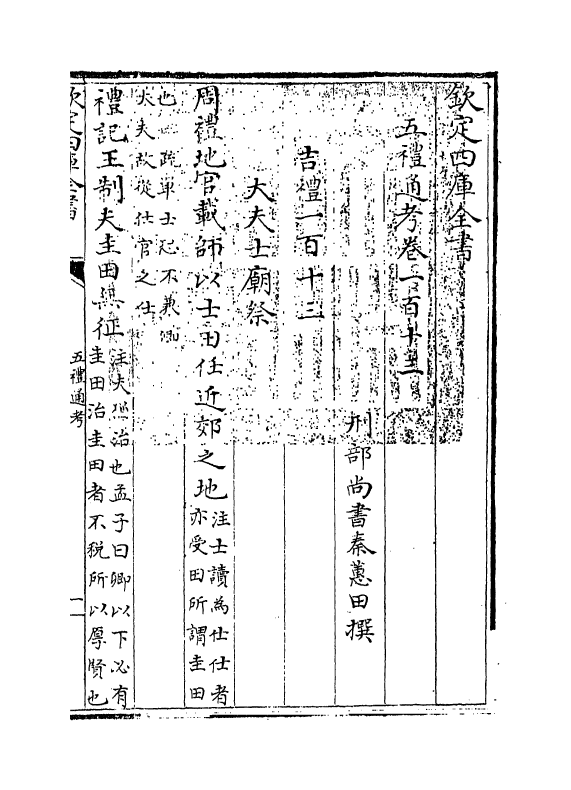 欽定四庫全書
五禮通考卷一百十三
刑部尚書秦蕙田撰
吉禮一百十三
大夫士廟祭
周禮地官載師以士田任近郊之地注士讀為仕仕者
亦受田所謂圭田
也 疏單士恐不兼卿
大夫故從仕官之仕
禮記王制夫圭田無征注夫猶治也孟子曰卿以下必有
圭田治圭田者不稅所以厚賢也
欽定四庫全書
五禮通考
一